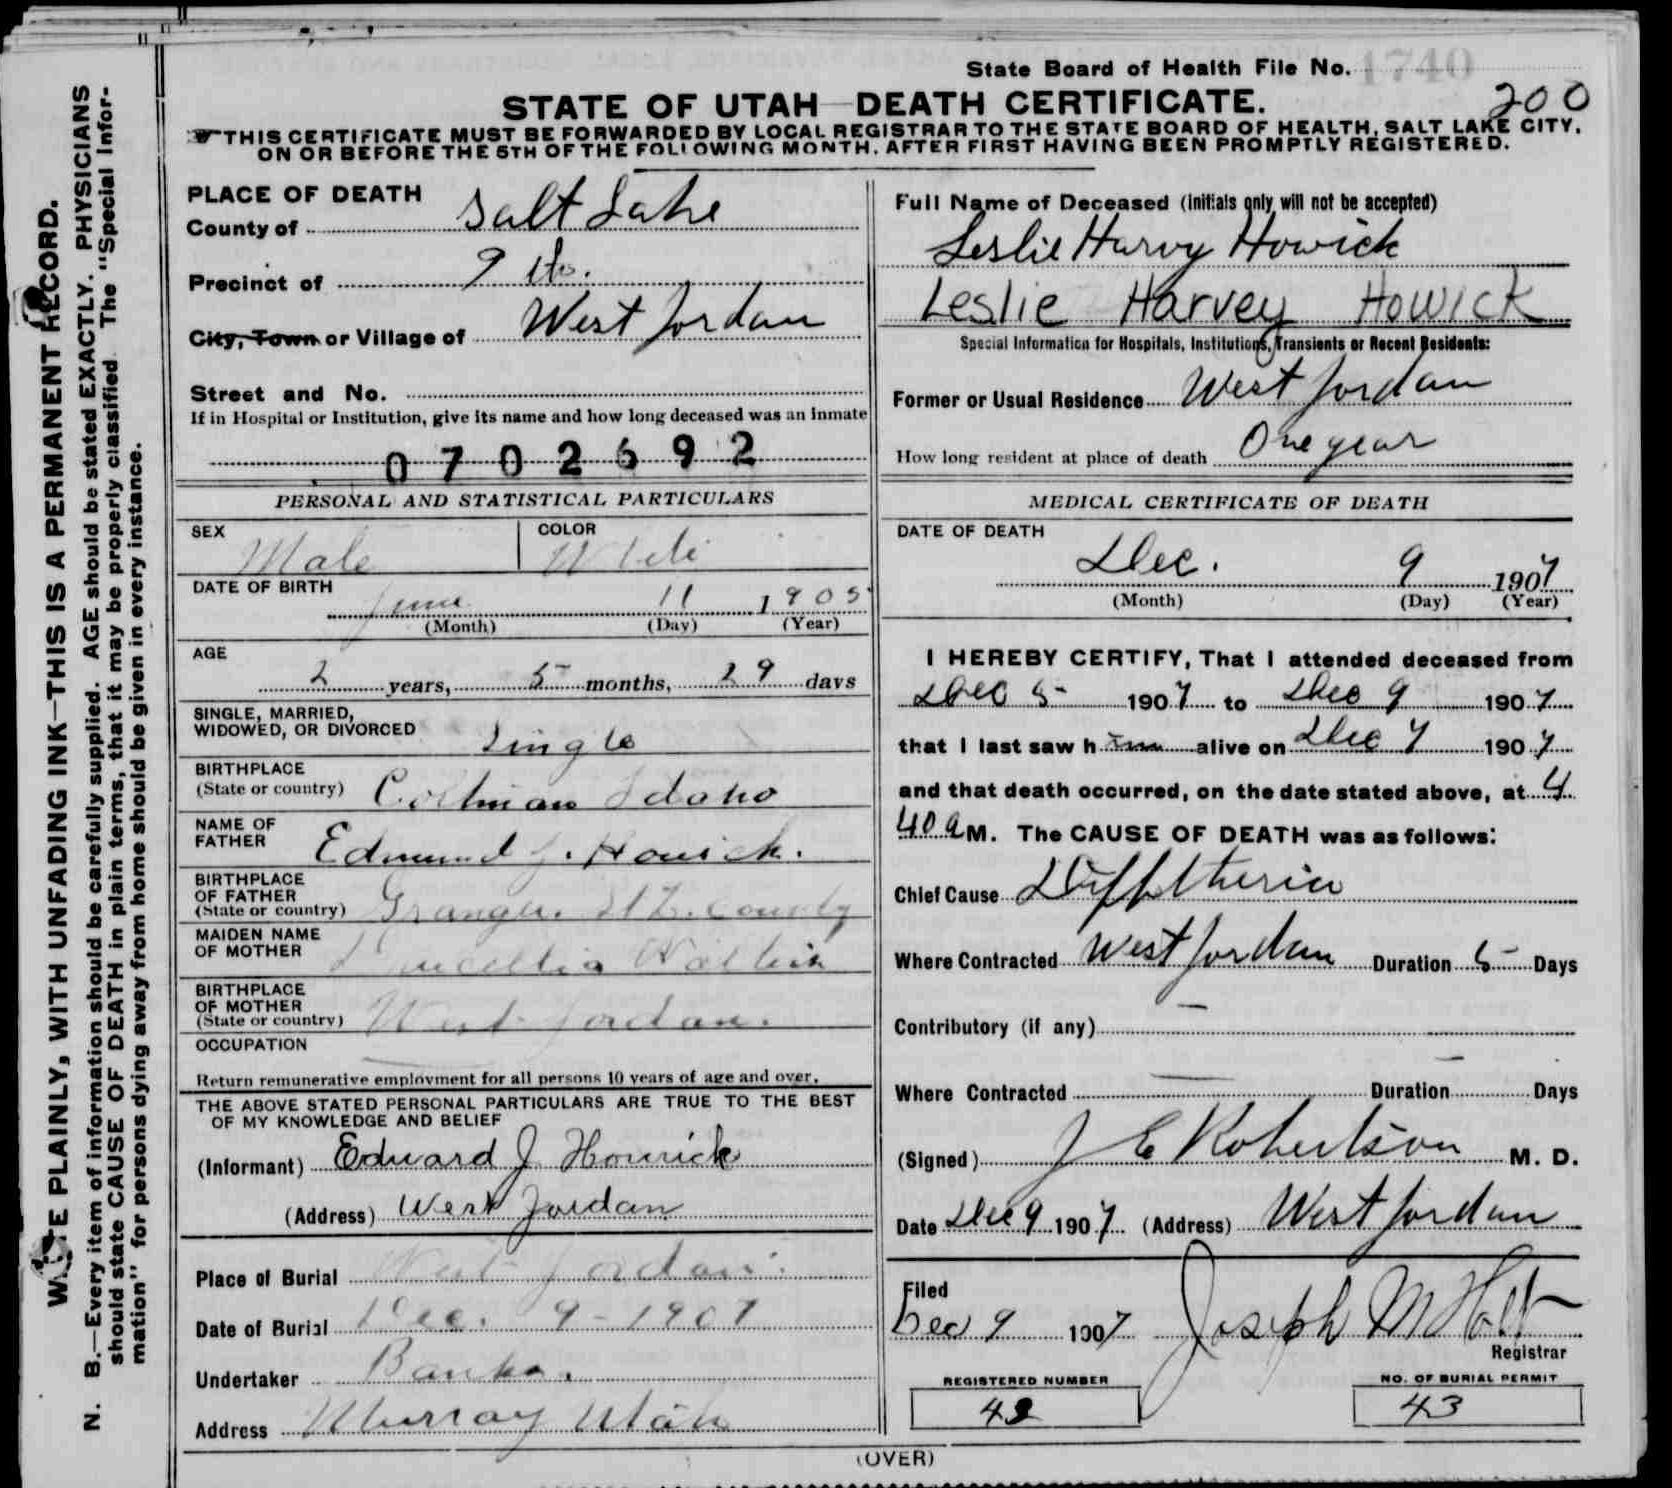 State Board of Health File No. 1740
200
STATE OF UTAH—DEATH CERTIFICATE.
THIS CERTIFICATE MUST BE FORWARDED BY LOCAL REGISTRAR TO THE STATE BOARD OF HEALTH, SALT LAKE CITY,
ON OR BEFORE THE 5TH OF THE FOLLOWING MONTH, AFTER FIRST HAVING BEEN PROMPTLY REGISTERED.
WRITE PLAINLY, WITH UNFADING INK—THIS IS A PERMANENT RECORD.
N. B.—Every item of information should be carefully supplied. AGE should be stated EXACTLY. PHYSICIANS
should state CAUSE OF DEATH in plain terms, that it may be properly classified. The "Special Infor-
mation" for persons dying away from home should be given in every instance.
PLACE OF DEATH
County of Salt Lake
Precinct of 9th.
City, Town or Village of West Jordan
Street and No.
If in Hospital or Institution, give its name and how long deceased was an inmate
0702692
PERSONAL AND STATISTICAL PARTICULARS
SEX Male COLOR White
DATE OF BIRTH
June 11 1905
(Month) (Day) (Year)
AGE
2 years, 5 months, 29 days
SINGLE, MARRIED,
WIDOWED, OR DIVORCED Single
BIRTHPLACE
(State or country) Coltman Idaho
NAME OF
FATHER Edmund J. Howick.
BIRTHPLACE
OF FATHER
(State or country) Granger. St L. County
MAIDEN NAME
OF MOTHER
BIRTHPLACE
OF MOTHER
(State or country) West Jordan.
OCCUPATION
Return remunerative employment for all persons 10 years of age and over.
THE ABOVE STATED PERSONAL PARTICULARS ARE TRUE TO THE BEST
OF MY KNOWLEDGE AND BELIEF
(Informant) Edward J Howick
(Address) West Jordan
Place of Burial West Jordan.
Date of Burial Dec. 9-1907
Undertaker Banks.
Address Murray Utah
Full Name of Deceased (Initials only will not be accepted)
Leslie Harvy Howick
Leslie Harvey Howick
Special Information for Hospitals, Institutions, Transients or Recent Residents:
Former or Usual Residence West Jordan
How long resident at place of death One year
MEDICAL CERTIFICATE OF DEATH
DATE OF DEATH
Dec. 9 1907
(Month) (Day) (Year)
I HEREBY CERTIFY, That I attended deceased from
Dec 5 1907 to Dec 9 1907
that I last saw him alive on Dec 7 1907
and that death occurred, on the date stated above, at 4
40 a M. The CAUSE OF DEATH was as follows:
Chief Cause Diphtheria
Where Contracted West Jordan Duration 5 Days
Contributory (if any) —
Where Contracted — Duration — Days
(Signed) J E Robertson M. D.
Date Dec 9 1907 (Address) West Jordan
Filed
Dec 9 1907 Joseph M Holt
Registrar
REGISTERED NUMBER
42
NO. OF BURIAL PERMIT
43
(OVER)